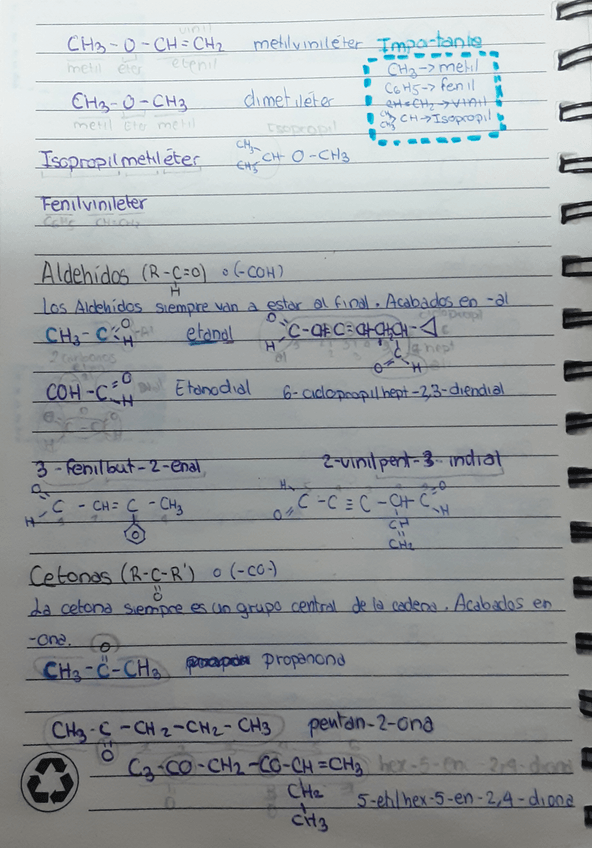 vinil
CH3-O-CH=CH2 metilvinileter Importante
metil éter etenil
CH3→metil
C6H5→fenil
CH=CH2→vinil
CH3 CH3 CH→Isopropil
CH3-O-CH3 dimetiléter
metil Eter metil
Isopropil
Isopropilmetiléter CH3 CH3 CH O-CH3
Fenilvinileter
C6H5 CH=CH2
Aldehidos (R-C=O) o (-COH)
H
Los Aldehidos siempre van a estar al final. Acabados en -al
CH3-C=O H etanal O H C-CH=C=CH-CH2CH-
2 carbonos C O H
COH-C=O H Etanodial 6-ciclopropilhept-2,3-diendial
3-fenilbut-2-enal 2-vinilpent-3-indial
O H C - CH = C - CH3 H O C - C ≡ C - CH - C O H
CH
CH2
Cetonas (R-C-R') o (-CO-)
O
La cetona siempre es un grupo central de la cadena. Acabados en
-ona.
O
CH3-C-CH3 propanona
CH3-C-CH2-CH2-CH3 pentan-2-ona
O
C3-CO-CH2-CO-CH=CH3 hex-5-en 2,4-diona
CH2
CH3
5-etilhex-5-en-2,4-diona